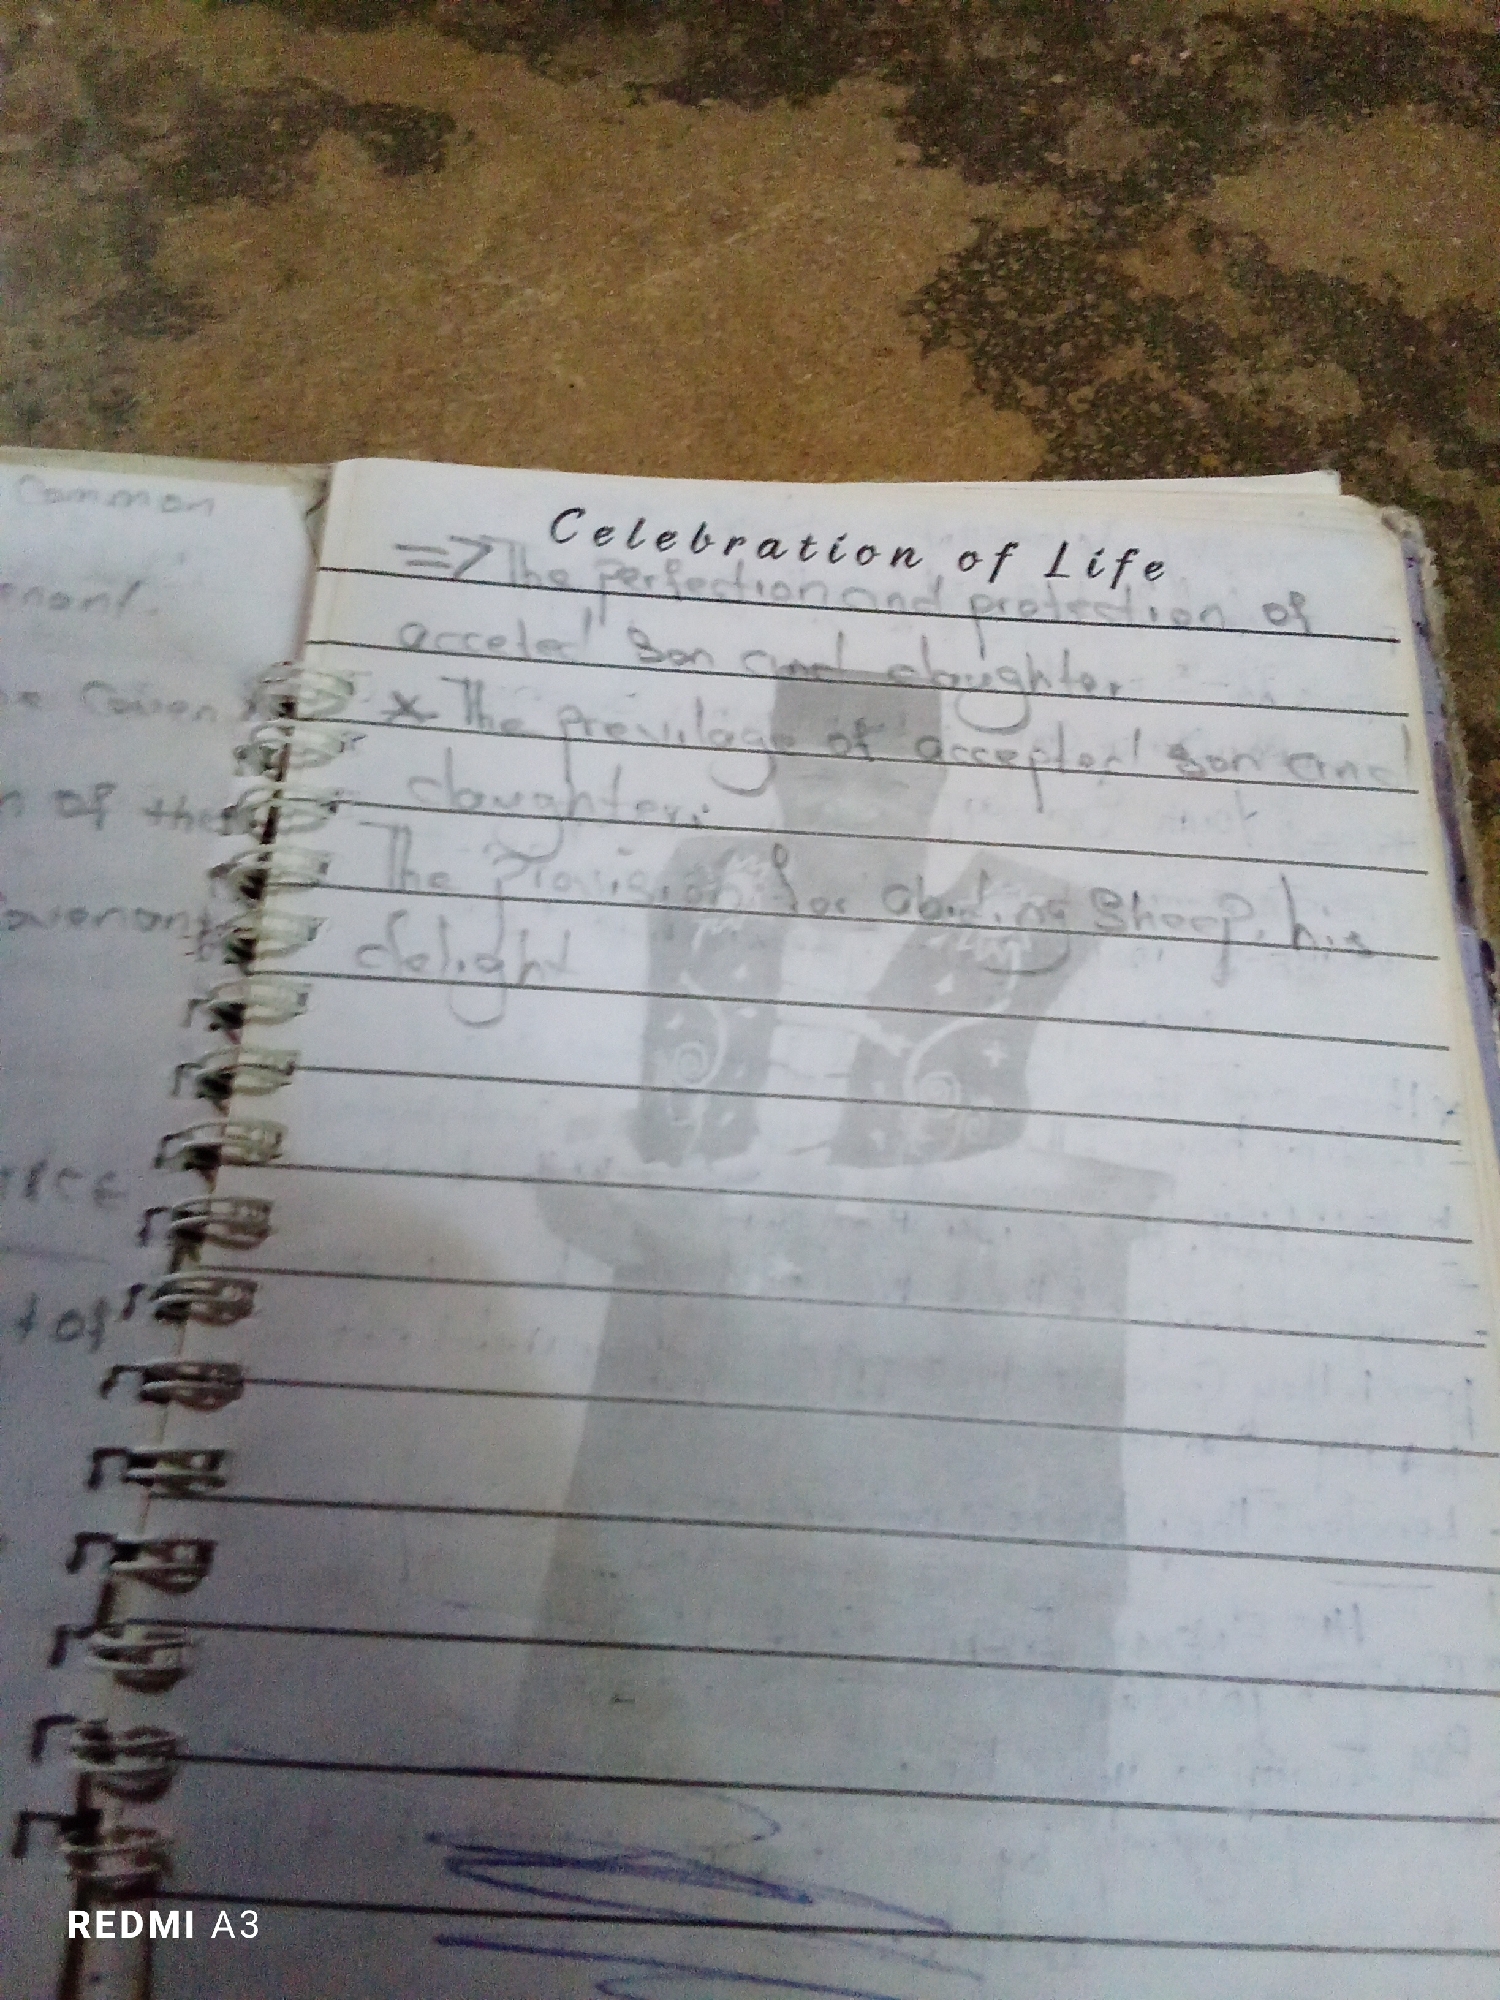 Common
enant.
e Coven
n of the
ovenant
t of
Celebration of Life
=> The perfection and protection of
acceted son and daughter
* The previlage of accepted son and
daughter.
The Provision for abiding Sheep, his
delight
REDMI A3